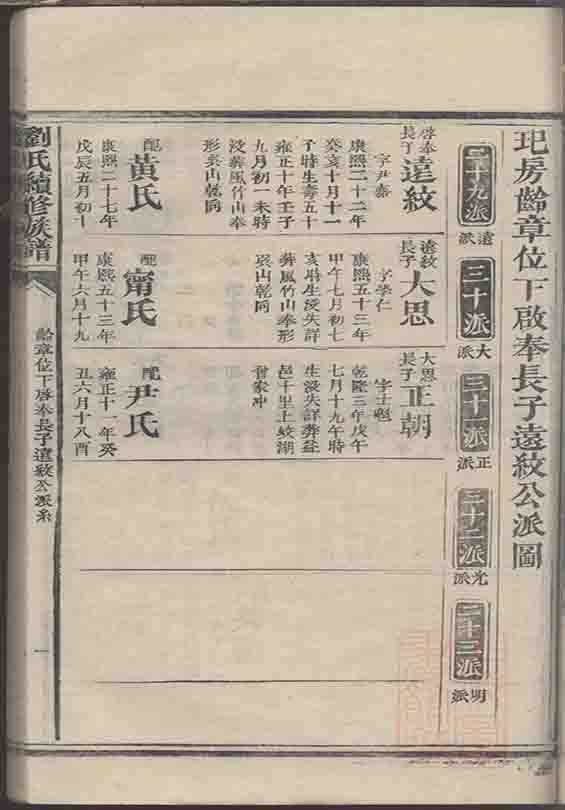 玘房齡章位下啟奉長子遠紋公派圖
二十九派
遠派
三十派
大派
三十一派
正派
三十二派
光派
三十三派
明派
啓奉
長子
遠紋
字尹嘉
康熙二十二年
癸亥十月十一
子時生壽五十
雍正十年壬子
九月初一未時
沒葬風竹山奉
形艮山乾同
配
黃氏
康熙二十七年
戊辰五月初十
遠紋
長子
大思
字學仁
康熙五十三年
甲午七月初七
亥時生沒失詳
葬風竹山奉形
艮山乾同
配
甯氏
康熙五十三年
甲午六月十九
大思
長子
正朝
字士魁
乾隆三年戊午
七月十九午時
生沒失詳葬益
邑十里上蛟湖
曾家冲
配
尹氏
雍正十一年癸
丑六月十八酉
劉氏續修族譜
齡章位下啓奉長子遠紋公派系
一